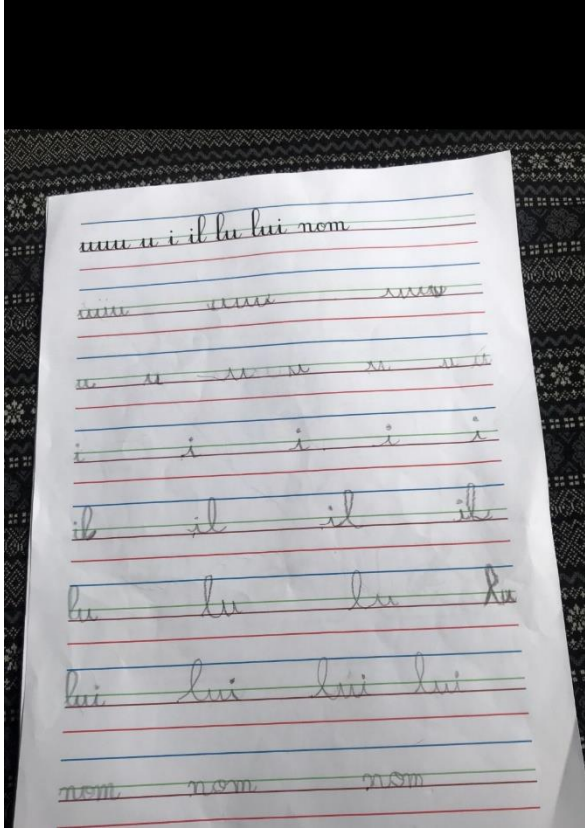 uuu u i il lu lui nom
uuu uuu uuu
u u u u u u u
i i i i i
il il il il
lu lu lu lu
lui lui lui lui
nom nom nom